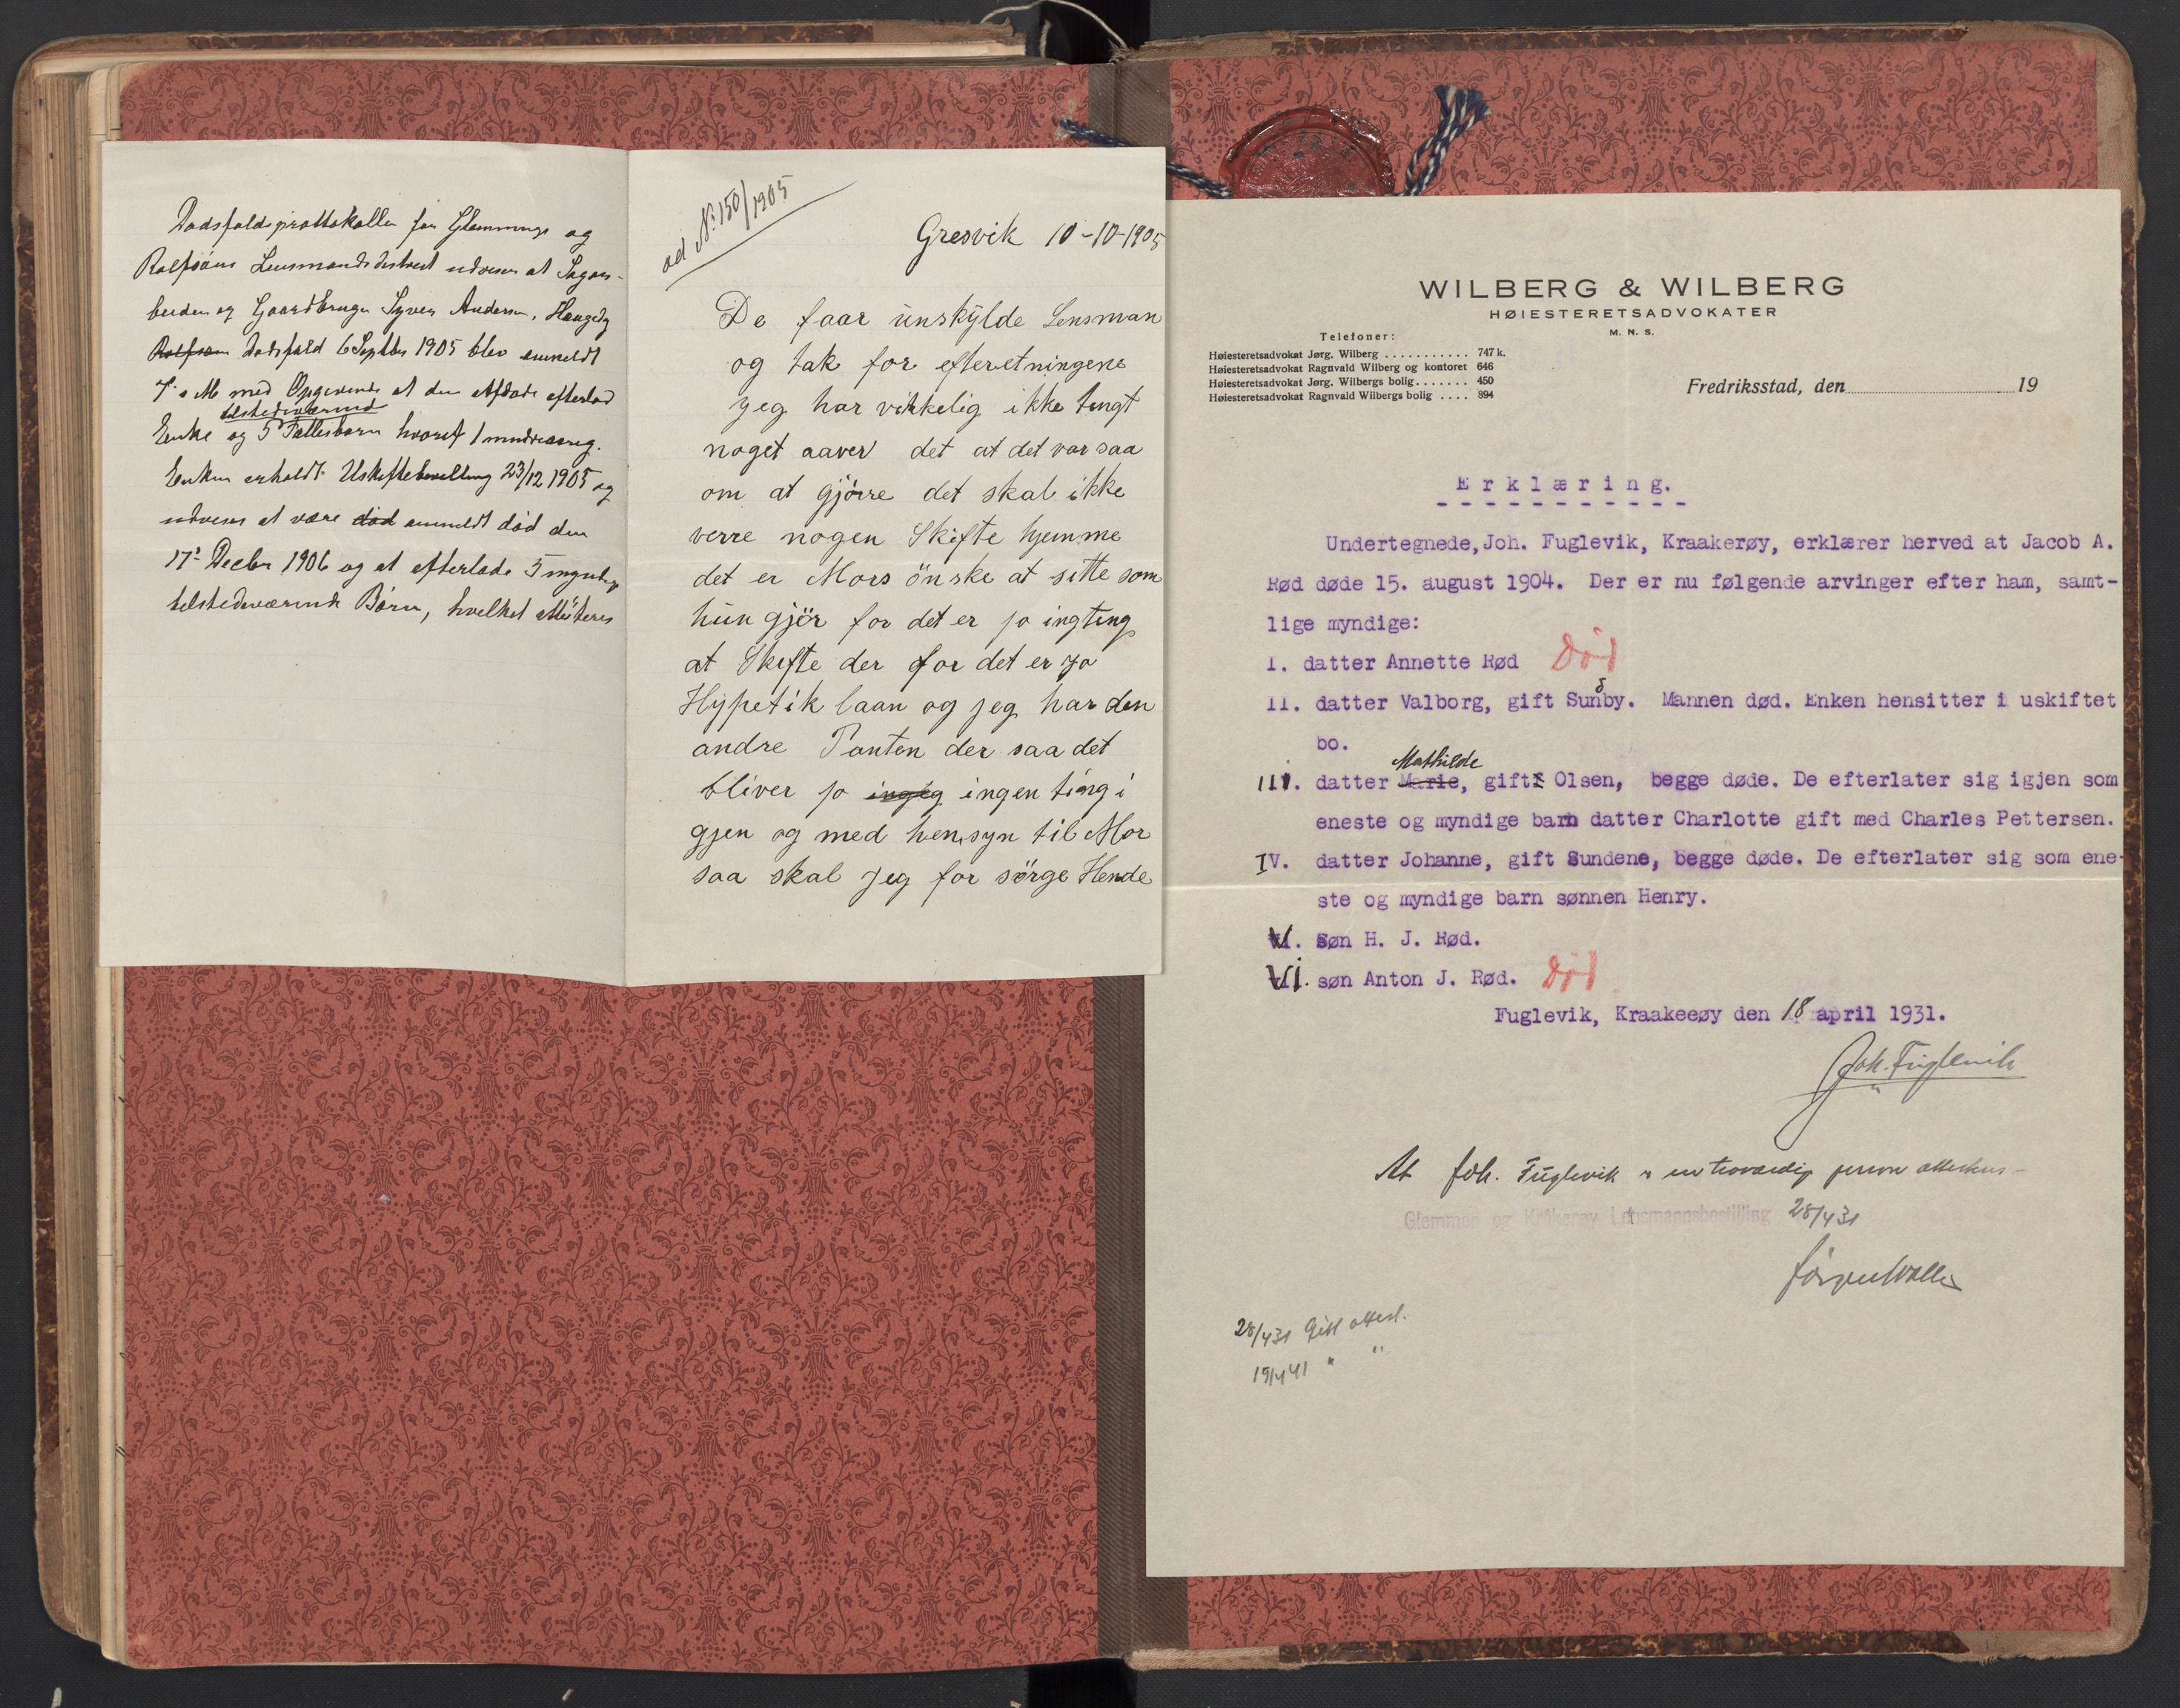 Dødsfaldsprottokollen for Glemminge og
Rolfsøens Lensmandsdistrikt udviser at Sagar-
beider og Gaardbruger Syver Andersen, Haugeby
Rolfsøen Dødsfald 6 Septbr 1905 blev anmeldt
7' s M med Opgivende at den Afdøde efterlod
tilstedeværende
Enke og 5 Fællesbørn hvoraf 1 mindreaarig.
Enken erholdt Uskiftebevilling 23/12 1905 og
udvises at være død anmeldt død den
17' Decbr 1906 og at efterlade 5 myndige
tilstedeværende Børn, hvilket attesteres
ad No 150/1905
Gresvik 10-10-1905
De faar unskylde Lensman
og tak for efteretningene
jeg har virkelig ikke tengt
noget aaver det at det var saa
om at gjøre det skal ikke
verre nogen Skifte hjemme
det er Mors önske at sitte som
hun gjör for det er jo ingting
at Skifte der for det er jo
Hypetik laan og jeg har den
andre Panten der saa det
bliver jo ingeg ingen ting i
gjen og med hensyn til Mor
saa skal jeg for sörge Hende
WILBERG & WILBERG
HØIESTERETSADVOKATER
M. N. S.
Telefoner:
Høiesteretsadvokat Jørg. Wilberg ........... 747 k.
Høiesteretsadvokat Ragnvald Wilberg og kontoret 646
Høiesteretsadvokat Jørg. Wilbergs bolig....... 450
Høiesteretsadvokat Ragnvald Wilbergs bolig .... 894
Fredriksstad, den 19
Erklæring.
Undertegnede, Joh. Fuglevik, Kraakerøy, erklærer herved at Jacob A.
Rød døde 15. august 1904. Der er nu følgende arvinger efter ham, samt-
lige myndige:
I. datter Annette Rød Død
II. datter Valborg, gift Sunby. Mannen død. Enken hensitter i uskiftet
bo.
Mathilde
III. datter Marie, gift Olsen, begge døde. De efterlater sig igjen som
eneste og myndige barn datter Charlotte gift med Charles Pettersen.
IV. datter Johanne, gift Sundene, begge døde. De efterlater sig som ene-
ste og myndige barn sønnen Henry.
V. Søn H. J. Rød.
VI. søn Anton J. Rød. Død
Fuglevik, Kraakeeøy den 18 april 1931.
Joh. Fuglevik
At Joh. Fuglevik er en troværdig person attesteres
Glemmen og Kråkerøy Lensmannsbestilling 28/4 31
28/4 31 Gitt attest.
19/4 41 " "